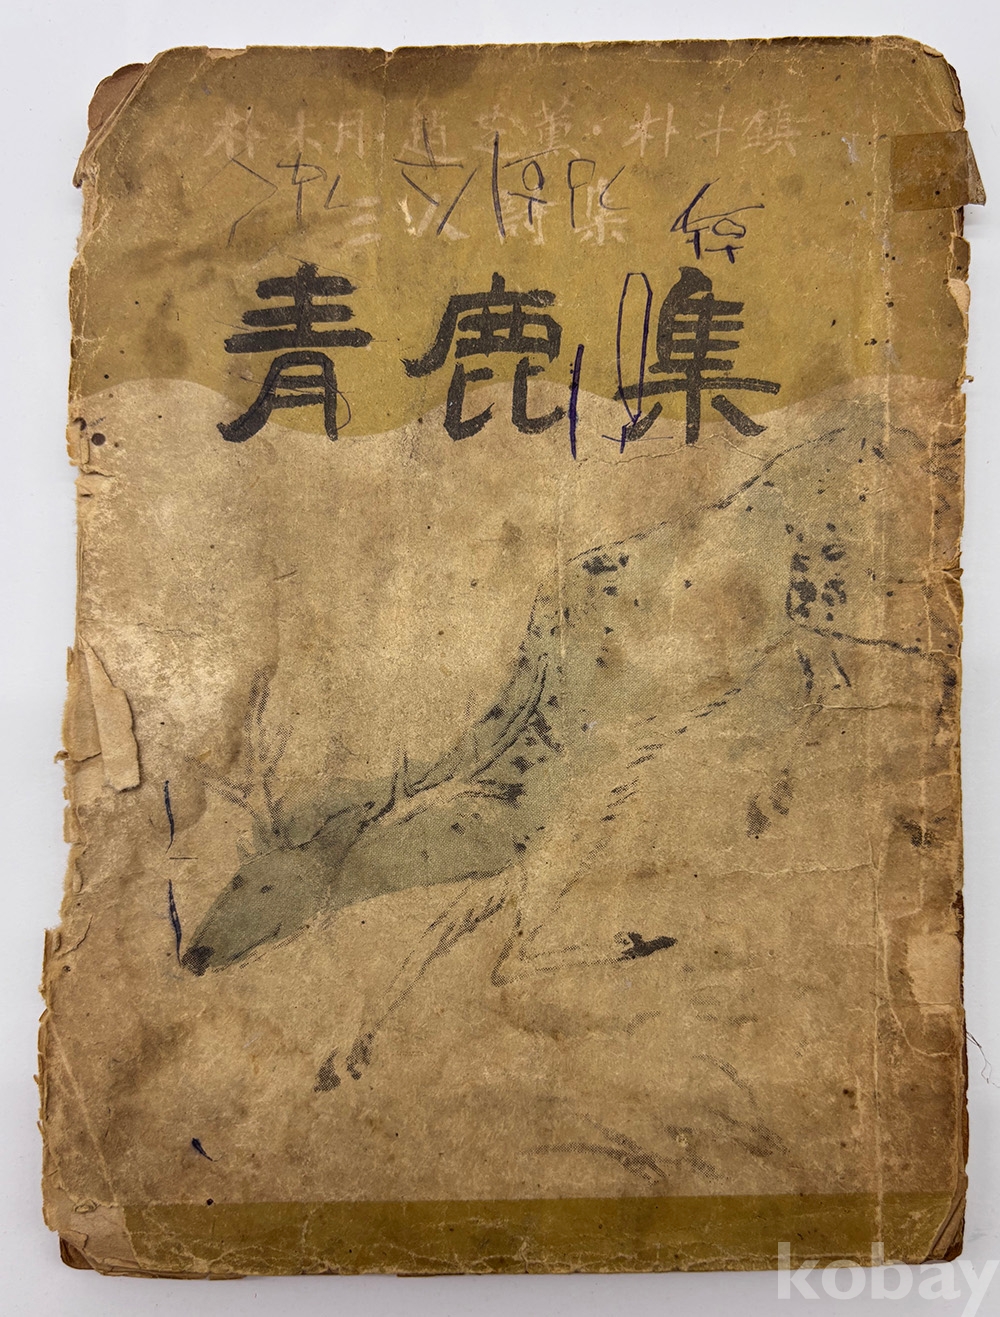 朴木月 趙芝薰·朴斗鎭
三人詩集
靑鹿集
kobay